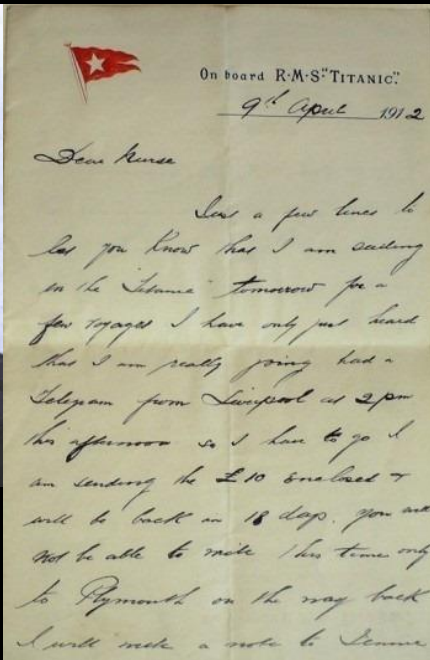 On board R·M·S. "TITANIC".
9th April 1912
Dear Nurse
Just a few lines to
let you know that I am sailing
in the "Titanic" tomorrow for a
few voyages I have only just heard
that I am really going had a
Telegram from Liverpool at 2 pm
this afternoon so I have to go I
am sending the £10 enclosed &
will be back in 18 days. you will
not be able to write this time only
to Plymouth on the way back
I will write a note to